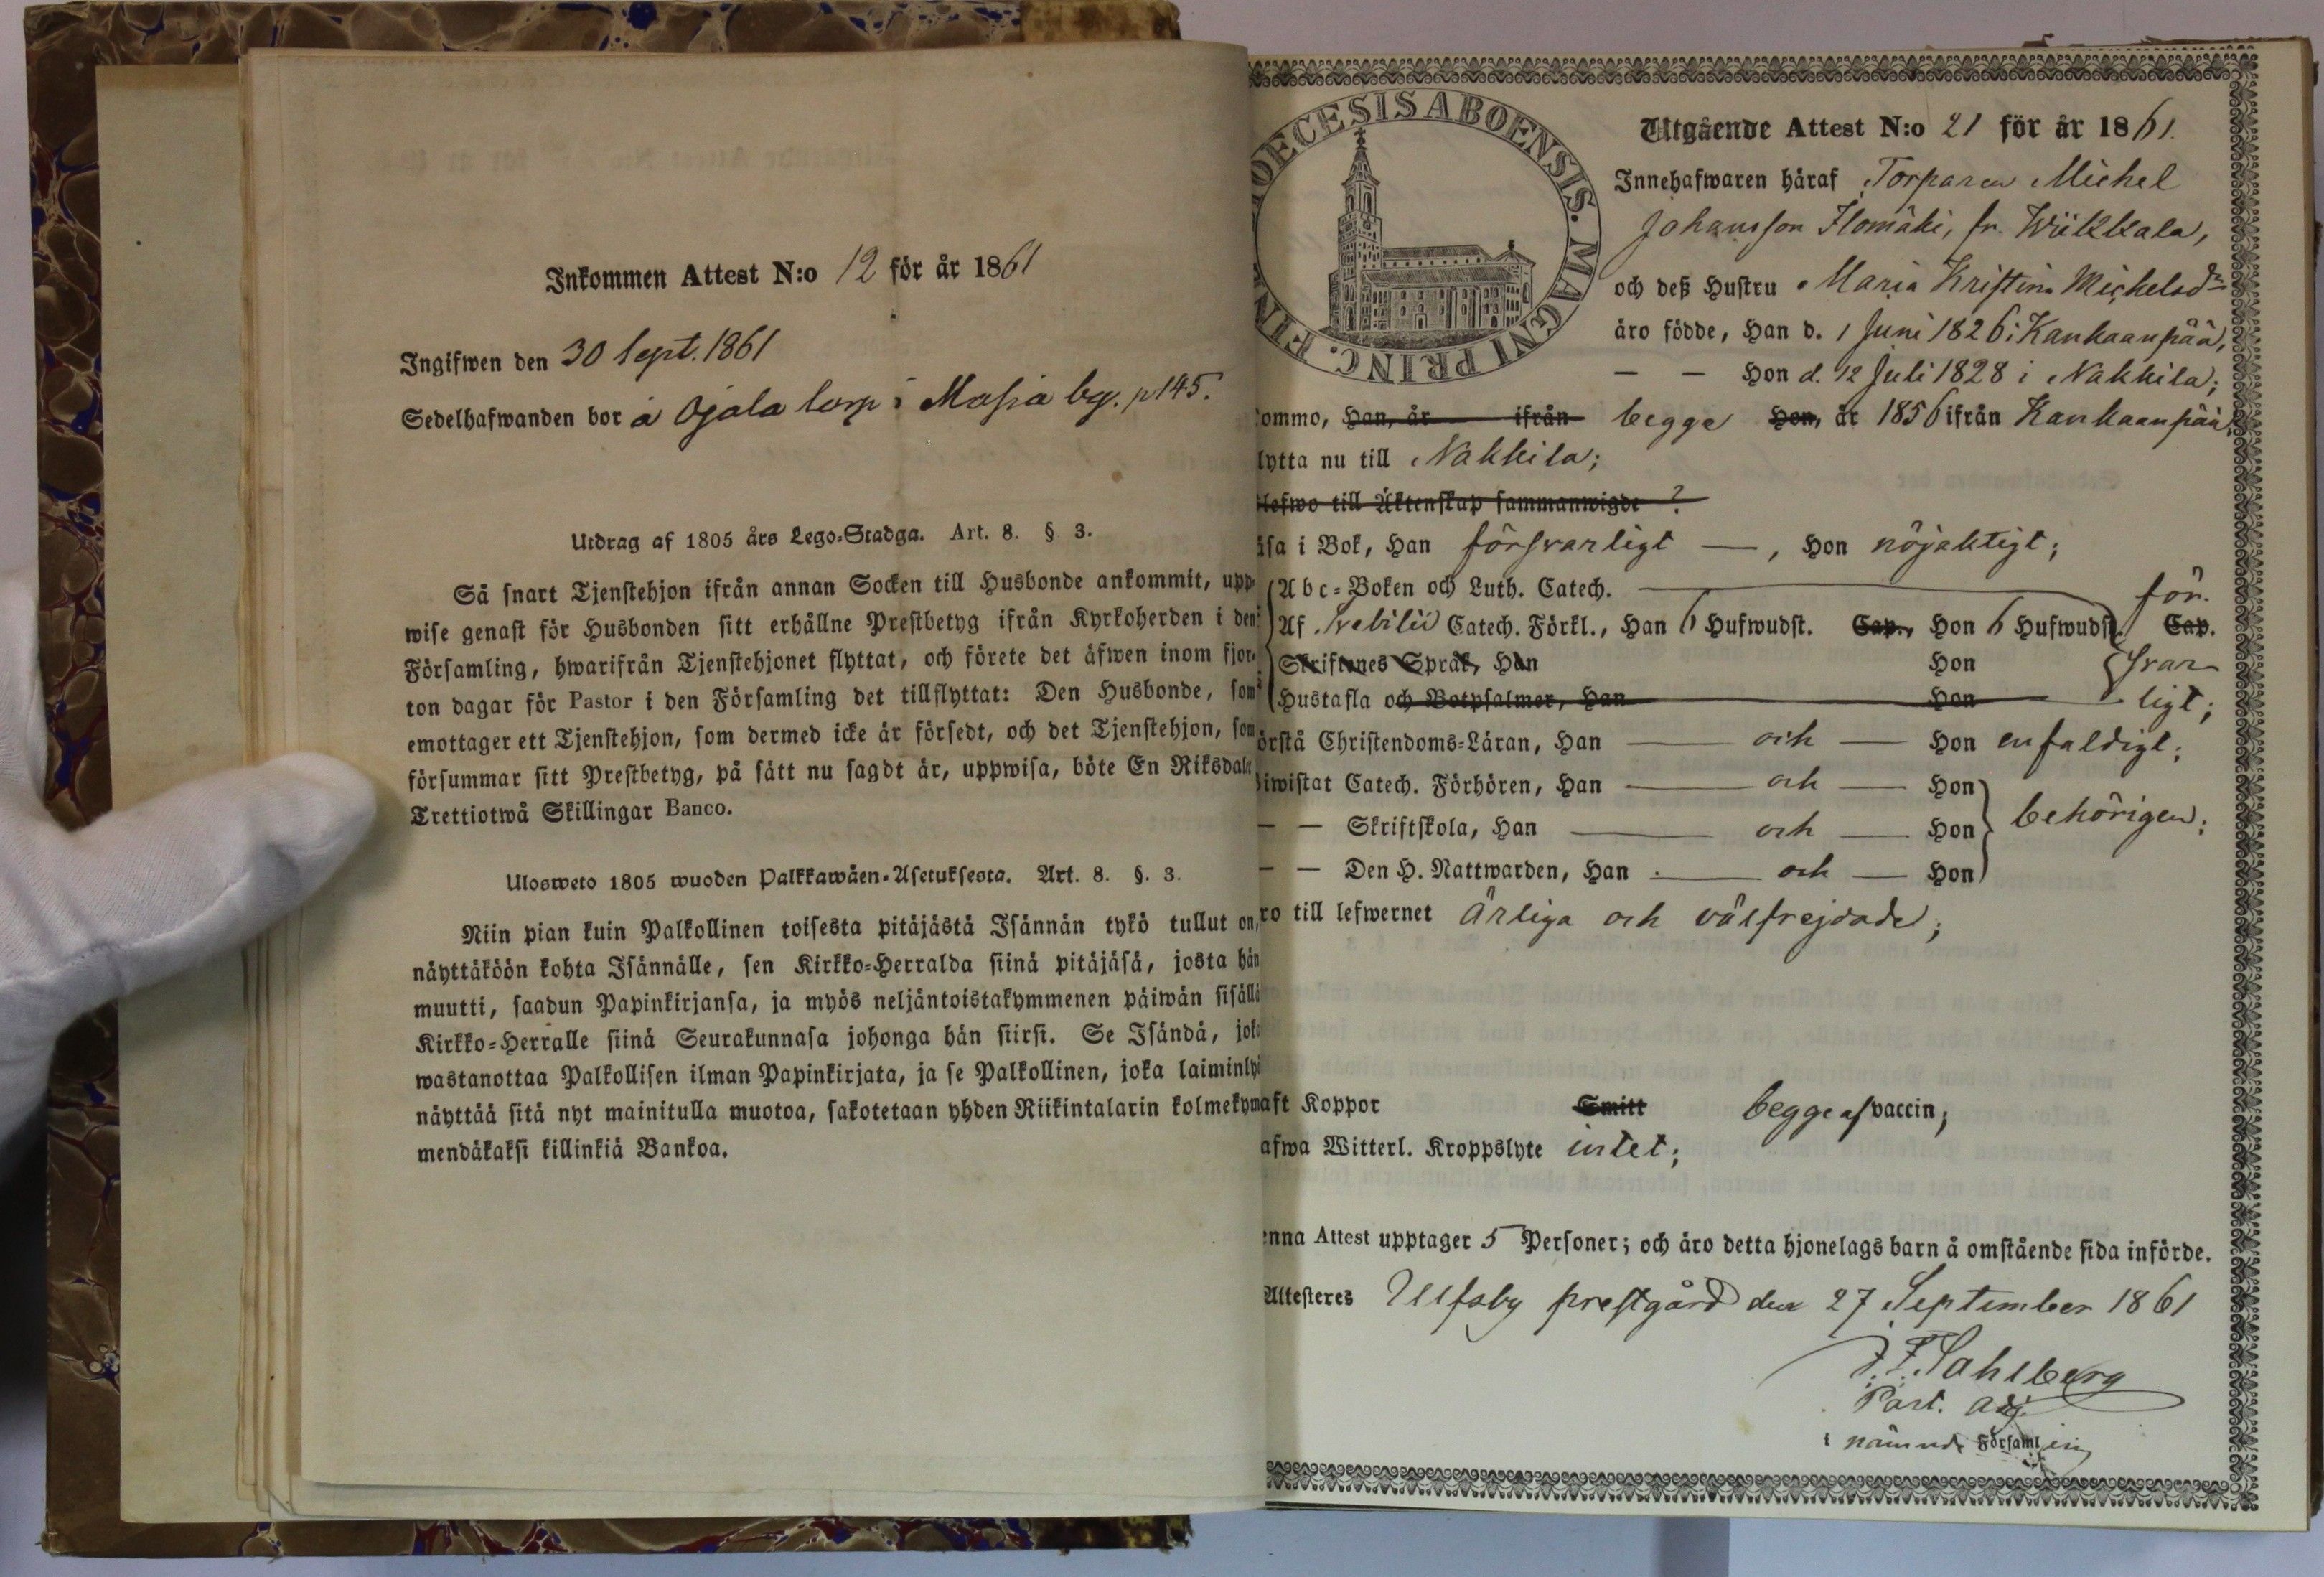 Inkommen Attest N:o 12 för år 1861
Ingifwen den 30 Sept. 1861
Sedelhafwanden bor å Ojala torp i Masia by. p 145.
Utdrag af 1805 års Lego-Stadga. Art. 8. § 3.
Så snart Tjenstehjon ifrån annan Socken till Husbonde ankommit, upp-
wise genast för Husbonden sitt erhållne Prestbetyg ifrån Kyrkoherden i den
Församling, hwarifrån Tjenstehjonet flyttat, och förete det äfwen inom fjor-
ton dagar för Pastor i den Församling det tillflyttat: Den Husbonde, som
emottager ett Tjenstehjon, som dermed icke är försedt, och det Tjenstehjon, som
försummar sitt Prestbetyg, på sätt nu sagdt är, uppwisa, böte En Riksdale
Trettiotwå Skillingar Banco.
Ulosweto 1805 wuoden Palkkawäen-Asetuksesta. Art. 8. §. 3.
Niin pian kuin Palkollinen toisesta pitäjästä Isännän tykö tullut on,
näyttäköön kohta Isännälle, sen Kirkko-Herralda siinä pitäjäsä, josta hän
muutti, saadun Papinkirjansa, ja myös neljäntoistakymmenen päiwän sisällä
Kirkko-Herralle siinä Seurakunnasa johonga hän siirsi. Se Isändä, joka
wastanottaa Palkollisen ilman Papinkirjata, ja se Palkollinen, joka laiminly
näyttää sitä nyt mainitulla muotoa, sakotetaan yhden Riikintalarin kolmekym
mendäkaksi killinkiä Bankoa.
OECESIS ABOENSIS. MAGNI PRINC. FIN
Utgående Attest N:o 21 för år 1861.
Innehafwaren häraf Torparen Michel
Johansson Ilomäki, fr. Wiikkala,
och deß Hustru Maria Kristina Michelsdr
äro födde, Han d. 1 Juni 1826 i Kankaanpää,
— — Hon d. 12 Juli 1828 i Nakkila;
ommo, Han, år ifrån begge Hon, år 1856 ifrån Kankaanpää,
lytta nu till Nakkila;
lefwo till Äktenskap sammanwigde ?
äsa i Bok, Han försvarligt —, Hon nöjaktigt;
Abc-Boken och Luth. Catech. — för-
Af Svebilii Catech. Förkl., Han 6 Hufwudst. Cap., Hon 6 Hufwudst. Cap.
Skriftenes Språk, Han Hon svar-
Hustafla och Botpsalmer, Han Hon ligt;
örstå Christendoms-Läran, Han — och — Hon enfaldigt;
iwistat Catech. Förhören, Han — och — Hon
— — Skriftskola, Han — och — Hon behörigen;
— — Den H. Nattwarden, Han — och — Hon
ro till lefwernet ärliga och välfrejdade;
aft Koppor Smitt begge af vaccin;
afwa Witterl. Kroppslyte intet;
enna Attest upptager 5 Personer; och äro detta hjonelags barn å omstående sida införde.
Attesteres Ulfsby prestgård den 27 September 1861
F. F. Sahlberg
Past. adj.
i nämnde Församling